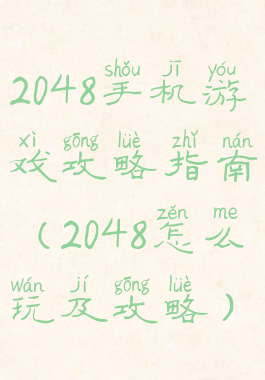 shǒu jī yóu
2048手机游
xì gōng lüè zhǐ nán
戏攻略指南
zěn me
（2048怎么
wán jí gōng lüè
玩及攻略）